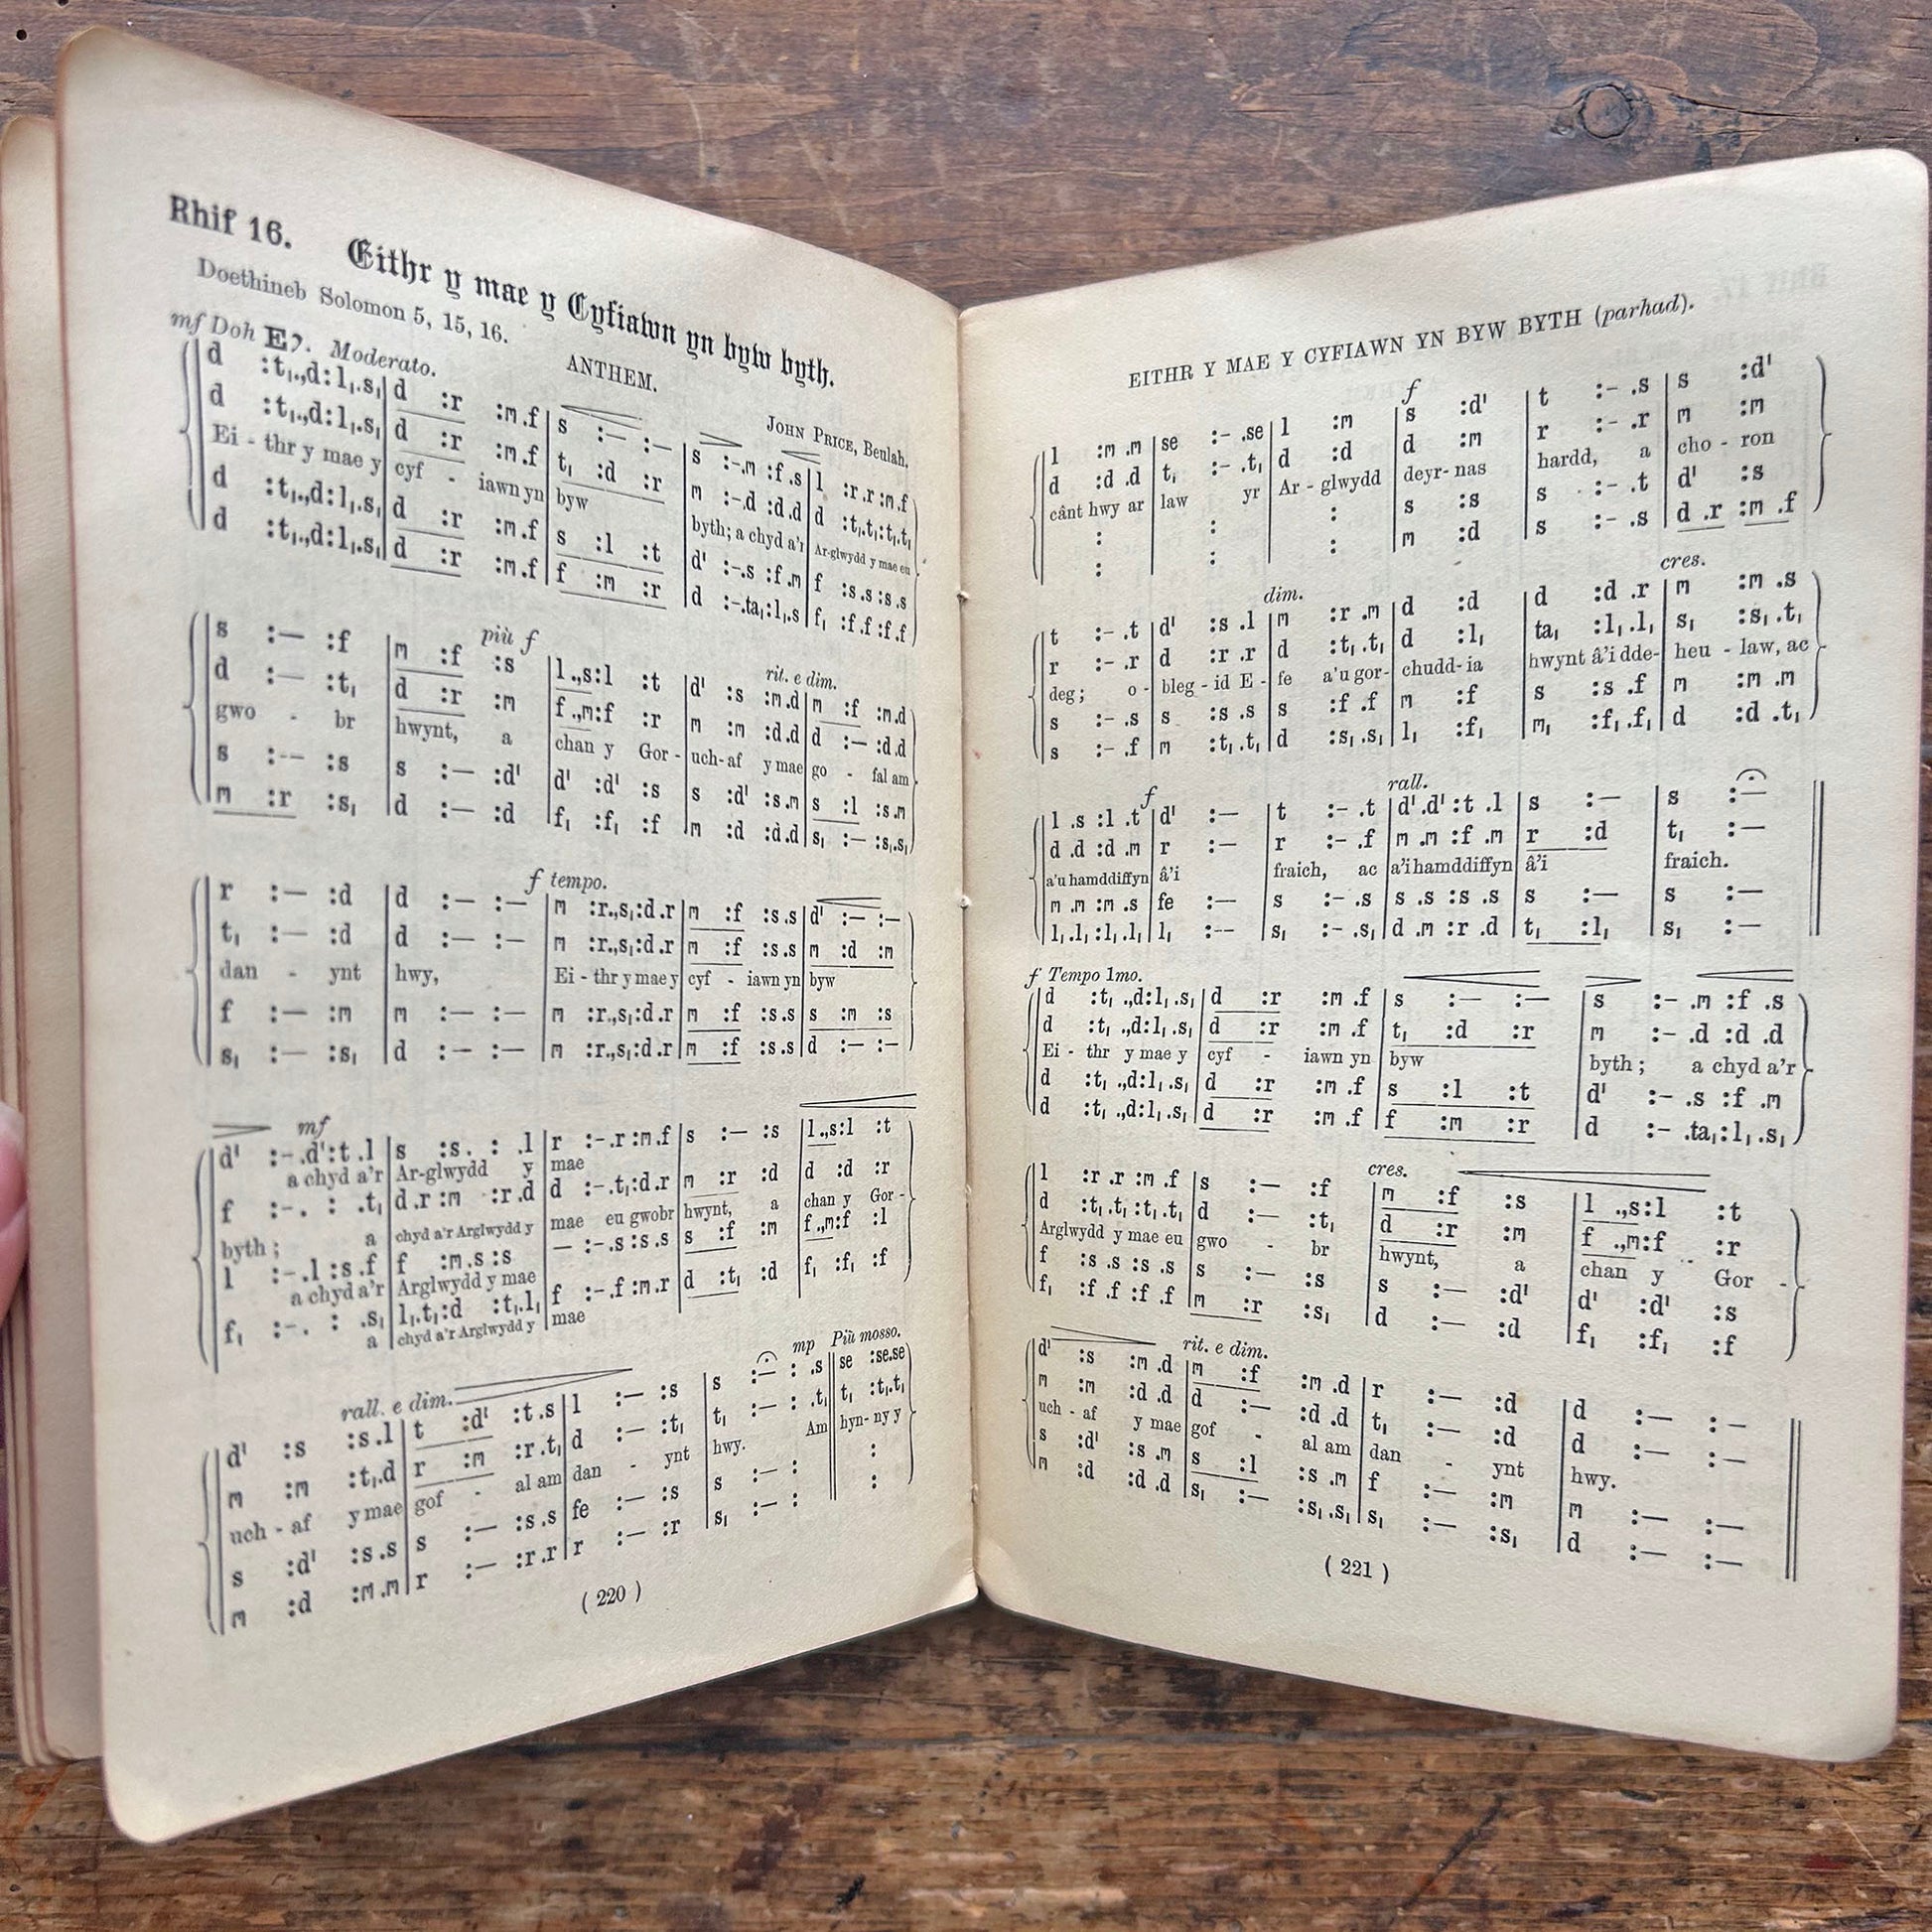 Rhif 16.
Eithr y mae y Cyfiawn yn byw byth.
Doethineb Solomon 5, 15, 16.
ANTHEM.
mf Doh E♭. Moderato.
JOHN PRICE, Beulah.
d :t₁.,d:l₁.s₁| d :r :m.f | s :— :— | s :-.m :f.s | l :r.r:m.f
d :t₁.,d:l₁.s₁| d :r :m.f | t₁ :d :r | m :-.d :d.d | d :t₁.t₁:t₁.t₁
Ei - thr y mae y cyf - iawn yn byw byth; a chyd a'r Ar-glwydd y mae eu
d :t₁.,d:l₁.s₁| d :r :m.f | s :l :t | d' :-.s :f.m | f :s.s:s.s
d :t₁.,d:l₁.s₁| d :r :m.f | f :m :r | d :-.ta₁:l₁.s | f₁ :f.f:f.f
più f
rit. e dim.
s :— :f | m :f :s | l.,s:l :t | d' :s :m.d | m :f :m.d
d :— :t₁ | d :r :m | f.,m:f :r | m :m :d.d | d :— :d.d
gwo - br hwynt, a chan y Gor - uch-af y mae go - fal am
s :-- :s | s :— :d' | d' :d' :s | s :d' :s.m | s :l :s.m
m :r :s₁ | d :— :d | f₁ :f₁ :f | m :d :d.d | s₁ :— :s₁.s₁
f tempo.
r :— :d | d :— :— | m :r.,s₁:d.r | m :f :s.s | d' :— :—
t₁ :— :d | d :— :— | m :r.,s₁:d.r | m :f :s.s | m :d :m
dan - ynt hwy, Ei - thr y mae y cyf - iawn yn byw
f :— :m | m :— :— | m :r.,s₁:d.r | m :f :s.s | s :m :s
s₁ :— :s₁ | d :— :— | m :r.,s₁:d.r | m :f :s.s | d :— :—
mf
d' :-.d':t.l | s :s. : .l | r :-.r:m.f | s :— :s | l.,s:l :t
a chyd a'r Ar-glwydd y mae
f :-. : .t₁ | d.r:m :r.d | d :-.t₁:d.r | m :r :d | d :d :r
byth; a chyd a'r Arglwydd y mae eu gwobr hwynt, a chan y Gor -
l :-.l:s.f | f :m.s:s | — :-.s:s.s | s :f :m | f.,m:f :l
a chyd a'r Arglwydd y mae
f₁ :-. : .s₁ | l₁.t₁:d :t₁.l₁ | f :-.f:m.r | d :t₁ :d | f₁ :f₁ :f
a chyd a'r Arglwydd y mae
rall. e dim.
mp Più mosso.
d' :s :s.l | t :d' :t.s | l :— :s | s :— : .s || se :se.se
m :m :t₁.d | r :m :r.t₁ | d :— :t₁ | t₁ :— : .t₁ || t₁ :t₁.t₁
uch - af y mae gof - al am dan - ynt hwy. Am hyn-ny y
s :d' :s.s | s :— :s.s | fe :— :s | s :— : || :
m :d :m.m | r :— :r.r | r :— :r | s₁ :— : || :
( 220 )
EITHR Y MAE Y CYFIAWN YN BYW BYTH (parhad).
f
l :m .m | se :- .se | l :m | s :d' | t :- .s | s :d'
d :d .d | t₁ :- .t₁ | d :d | d :m | r :- .r | m :m
cânt hwy ar law yr Ar - glwydd deyr-nas hardd, a cho - ron
: | : | : | s :s | s :- .t | d' :s
: | : | : | m :d | s :- .s | d .r :m .f
dim.
cres.
t :- .t | d' :s .l | m :r .m | d :d | d :d .r | m :m .s
r :- .r | d :r .r | d :t₁ .t₁ | d :l₁ | ta₁ :l₁ .l₁ | s₁ :s₁ .t₁
deg; o - bleg - id E - fe a'u gor- chudd-ia hwynt â'i dde- heu - law, ac
s :- .s | s :s .s | s :f .f | m :f | s :s .f | m :m .m
s :- .f | m :t₁ .t₁ | d :s₁ .s₁ | l₁ :f₁ | m₁ :f₁ .f₁ | d :d .t₁
f
rall.
l .s :l .t | d' :— | t :- .t | d'.d':t .l | s :— | s :—
d .d :d .m | r :— | r :- .f | m .m :f .m | r :d | t₁ :—
a'u hamddiffyn â'i fraich, ac a'i hamddiffyn â'i fraich.
m .m :m .s | fe :— | s :- .s | s .s :s .s | s :— | s :—
l₁.l₁:l₁.l₁ | l₁ :-- | s₁ :- .s₁ | d .m :r .d | t₁ :l₁ | s₁ :—
f Tempo 1mo.
d :t₁ .,d:l₁ .s₁ | d :r :m .f | s :— :— | s :- .m :f .s
d :t₁ .,d:l₁ .s₁ | d :r :m .f | t₁ :d :r | m :- .d :d .d
Ei - thr y mae y cyf - iawn yn byw byth; a chyd a'r
d :t₁ .,d:l₁ .s₁ | d :r :m .f | s :l :t | d' :- .s :f .m
d :t₁ .,d:l₁ .s₁ | d :r :m .f | f :m :r | d :- .ta₁:l₁ .s₁
cres.
l :r .r :m .f | s :— :f | m :f :s | l .,s:l :t
d :t₁ .t₁ :t₁ .t₁ | d :— :t₁ | d :r :m | f .,m:f :r
Arglwydd y mae eu gwo - br hwynt, a chan y Gor -
f :s .s :s .s | s :— :s | s :— :d' | d' :d' :s
f₁ :f .f :f .f | m :r :s₁ | d :— :d | f₁ :f₁ :f
rit. e dim.
d' :s :m .d | m :f :m .d | r :— :d | d :— :—
m :m :d .d | d :— :d .d | t₁ :— :d | d :— :—
uch - af y mae gof - al am dan - ynt hwy.
s :d' :s .m | s :l :s .m | f :— :m | m :— :—
m :d :d .d | s₁ :— :s₁.s₁ | s₁ :— :s₁ | d :— :—
( 221 )